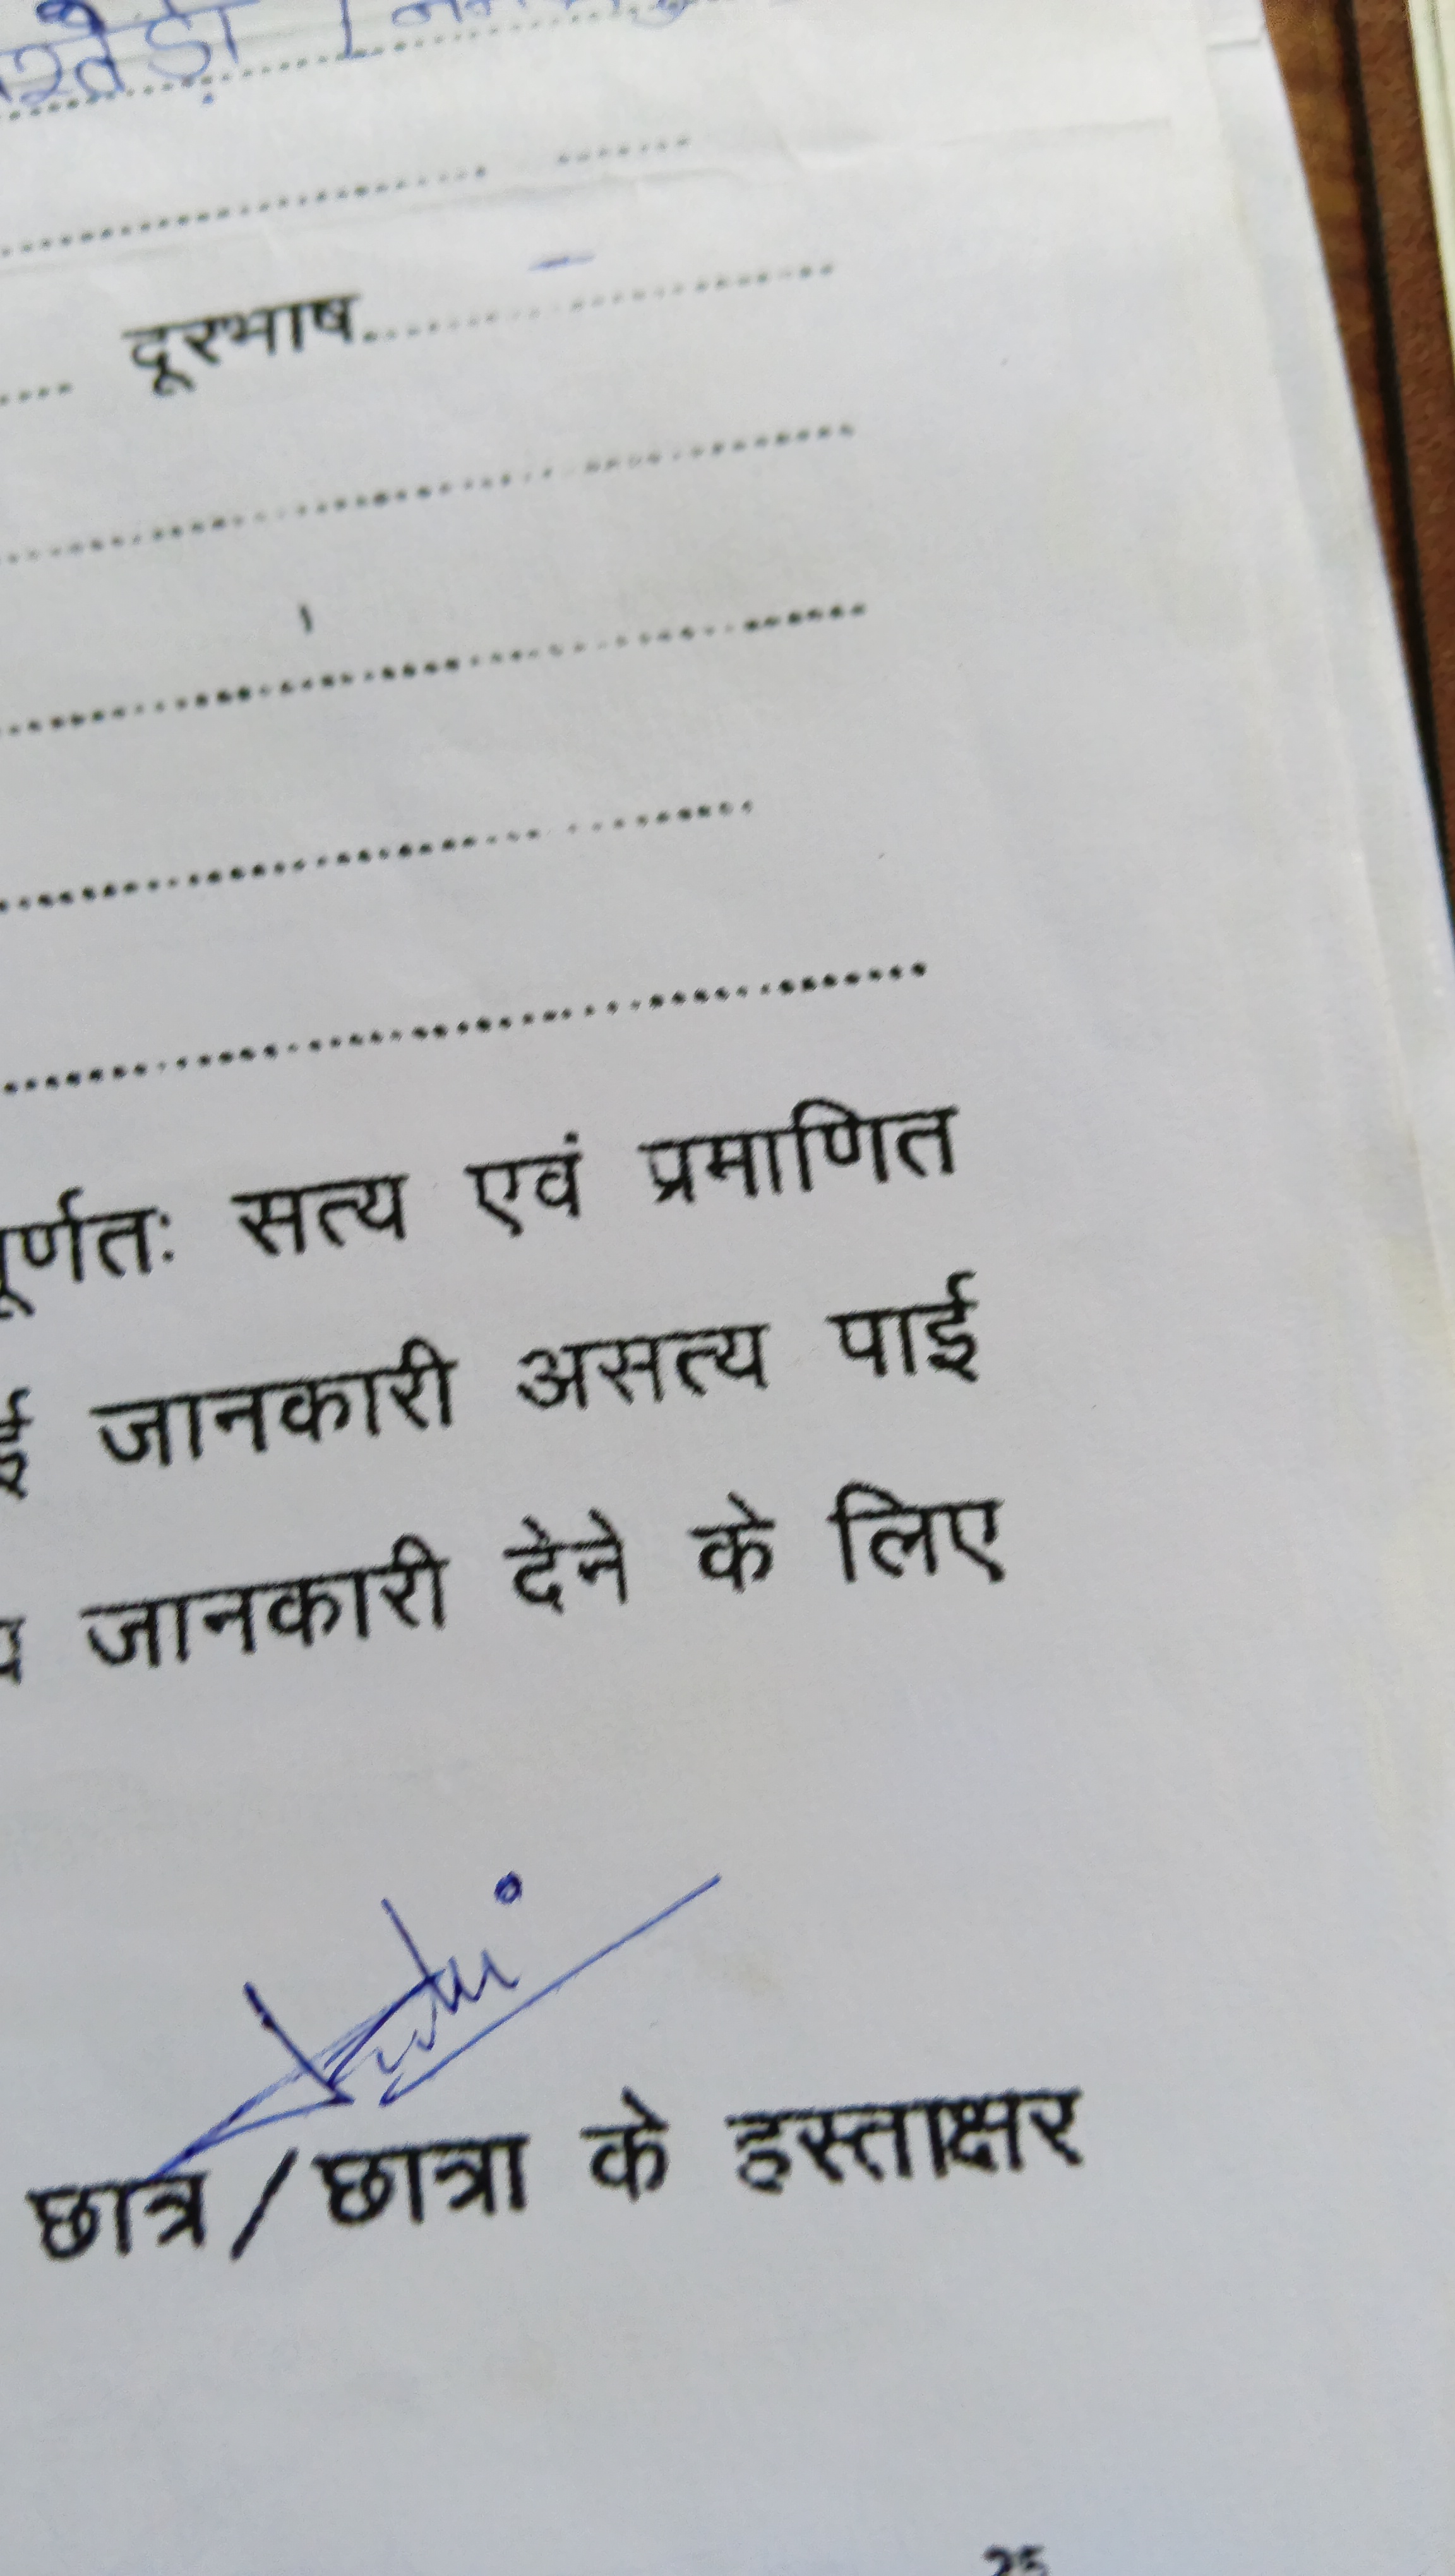 दूरभाष
पूर्णतः सत्य एवं प्रमाणित
ई जानकारी असत्य पाई
जानकारी देने के लिए
छात्र / छात्रा के हस्ताक्षर
25